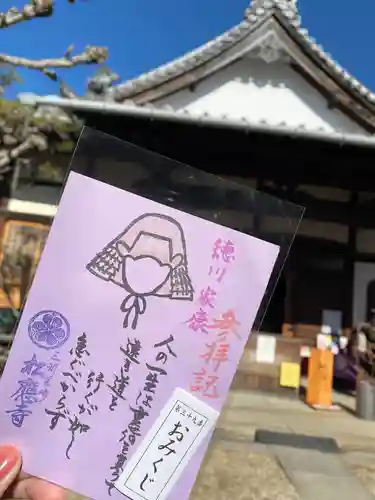 徳川家康
参拝記
人の一生は重荷を負うて
遠き道を
行くが如し
急ぐべからず
松應寺
おみくじ